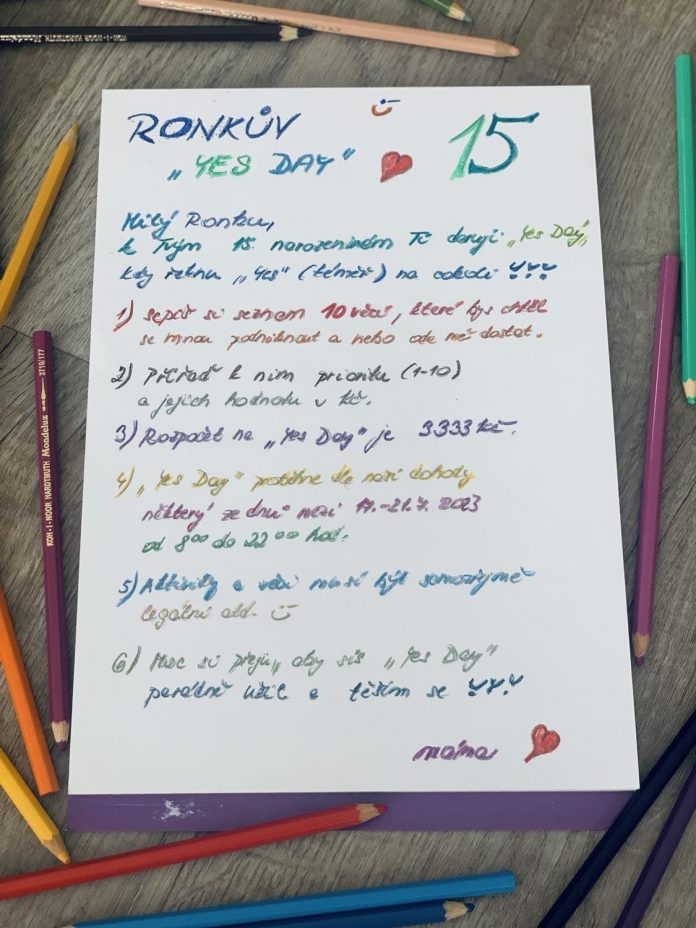 KOH-I-NOOR HARDTMUTH Mondeluz
RONKŮV
15
„YES DAY"
Milý Ronku,
k Tvým 15. narozeninám Ti daruji „Yes Day",
kdy řeknu „Yes" (téměř) na cokoli
1) Sepiš si seznam 10 věcí, které bys chtěl
se mnou podniknout a nebo ode mě dostat.
2) Přiřaď k nim prioritu (1-10)
a jejich hodnotu v Kč.
3) Rozpočet na „Yes Day" je 3333 Kč.
4) „Yes Day" proběhne dle naší dohody
některý ze dnů mezi 17.-21.7. 2023
od 8⁰⁰ do 22⁰⁰ hod.
5) Aktivity a věci musí být samozřejmě
legální atd.
6) Moc si přeju, aby sis „Yes Day"
parádně užil a těším se
máma
KOH-I-NOOR HARDTMUTH Mondeluz 3710/177